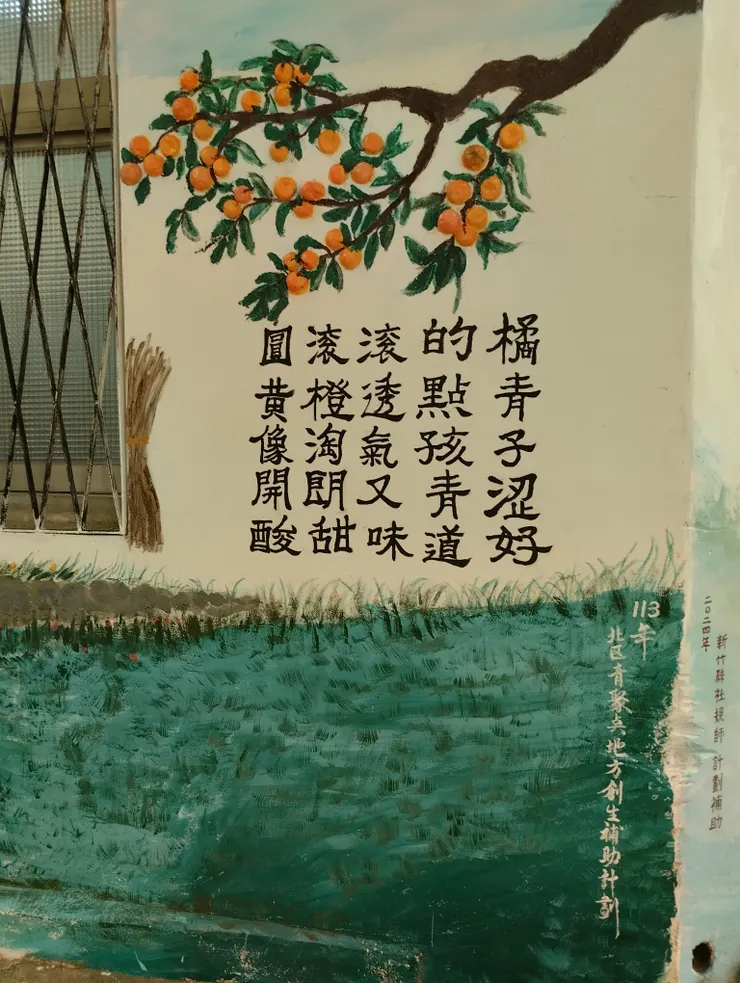 圓滾滾的橘
黃橙透點青
像淘氣孩子
開朗又青澀
酸甜味道好
113年
北區青聚点地方創生補助計劃
二〇二四年
新竹縣社規師 計劃補助